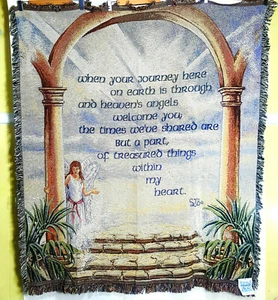 when your journey here
on earth is through,
and heaven's angels
welcome you,
the times we've shared are
but a part,
of treasured things
within
my
heart.